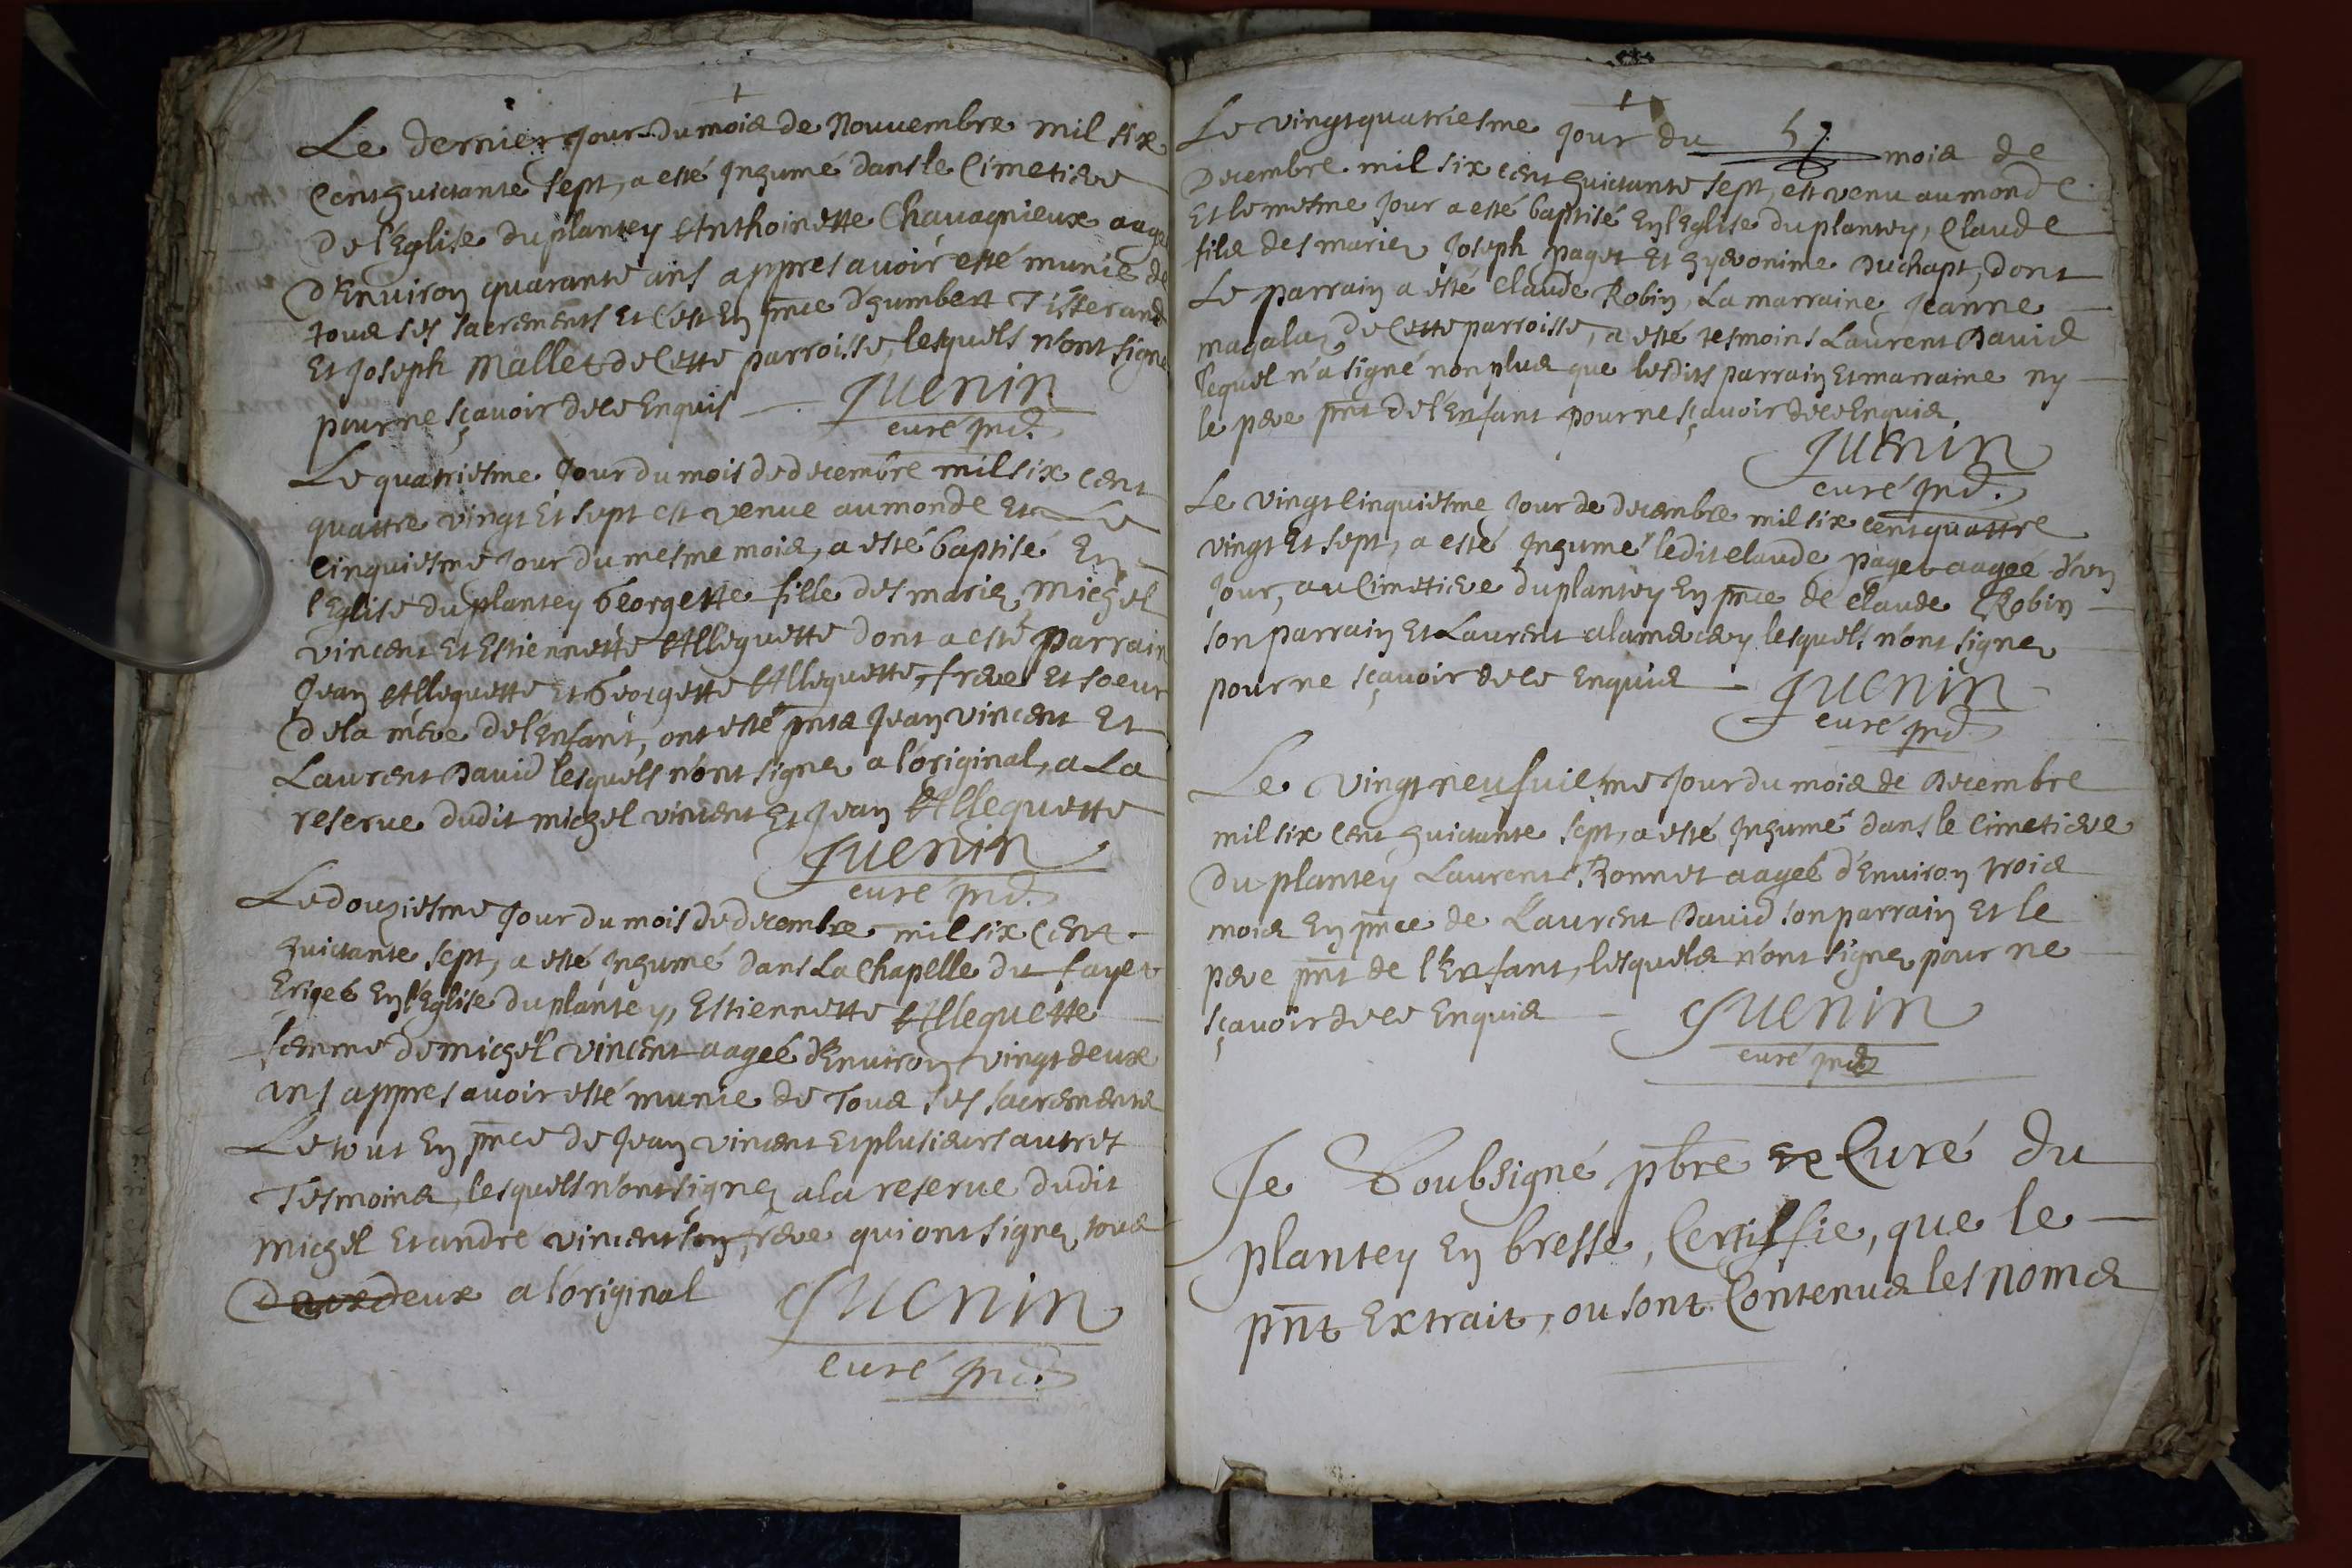 Le dernier Jour du mois de Nouuembre mil six
Cent huictante sept, a esté Inhumé dans le Cimetiere
de l'Eglise du plantey Anthoinette Chauagnieux aagé
d'Enuiron quarante ans appres auoir esté munie de
tous ses sacrements Et c'est En pnce d'humbert Tisserand
Et Joseph Mallet de Cette parroisse, lesquels n'ont signé
pour ne sçauoir de ce Enquis Juenin
curé
Le quatriesme Jour du mois de decembre mil six Cent
quattre vingt Et sept est venue au monde Et Le
Cinquiesme Jour du mesme mois, a esté baptisé En
l'Eglise du plantey Georgette fille des mariez Michel
vincent Et Estiennette Allequette dont a esté parrain
Jean Allequette Et Georgette Allequette, frere Et soeur
de la mere de l'Enfant, ont esté pnts Jean vincent Et
Laurent Dauid lesquels n'ont signez a l'original, a La
reserue dudit michel vincent Et Jean Allequette
Juenin
curé
Le douziesme Jour du mois de decembre mil six Cent
huictante sept, a esté Inhumé dans La Chapelle du fayet
Erigeé En l'Eglise du plantey, Estiennette Allequette
femme de michel vincent aageé d'Enuiron vingt deux
ans appres auoir esté munie de Tous ses sacrements
Le tout En pnce de Jean vincent Et plusieurs autres
Tesmoins, lesquels n'ont signez a la reserue dudit
Michel Et andré vincent son frere qui ont signez tous
deux a l'original Juenin
curé
Le vingt quatriesme Jour du mois de
Decembre mil six cent huictante sept, est venu au monde
Et le mesme Jour a esté baptisé En l'Eglise du plantey, Claude
fils des mariez Joseph paget Et hyeronime Duchapt, dont
Le parrain a esté Claude Robin, La marraine Jeanne
magalaz de Cette parroisse, a esté tesmoins Laurent Dauid
lequel n'a signé non plus que lesdits parrain Et marraine ny
le pere pnt de l'Enfant pour ne sçauoir de ce Enquis
Juenin
curé
Le vingt Cinquiesme Jour de decembre mil six cent quattre
vingt Et sept, a esté Inhumé ledit claude paget aageé d'un
Jour, au Cimetiere du plantey En pnce de Claude Robin
son parrain Et Laurent alamercery lesquels n'ont signez
pour ne sçauoir de ce Enquis Juenin
curé
Le vingt neufuiesme Jour du mois de Decembre
mil six Cent huictante sept, a esté Inhumé dans le Cimetiere
du plantey Laurent Bonnet aageé d'Enuiron trois
mois En pnce de Laurent Dauid son parrain Et le
pere pnt de l'Enfant, lesquels n'ont signez pour ne
sçauoir de ce Enquis Juenin
curé
Je Soubsigné pbre Curé du
plantey En bresse, Certiffie, que le
pnt Extrait, ou sont Contenus les noms